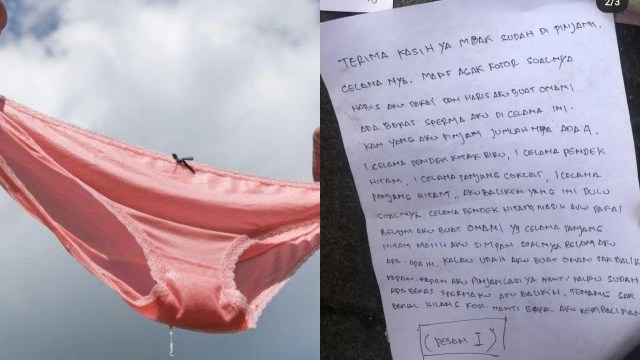 2/3
TERIMA KASIH YA MBAK SUDAH DI PINJAMI.
CELANA NYA. MAAF AGAK KOTOR SOALNYA
HABIS AKU PAKAI DAN HABIS AKU BUAT ONANI
ADA BEKAS SPERMA AKU DI CELANA INI.
KAN YANG AKU PINJAM JUMLAH NYA ADA 4.
1 CELANA PENDEK KOTAK BIRU, 1 CELANA PENDEK
HITAM, 1 CELANA PANJANG COKLAT, 1 CELANA
PANJANG HITAM, AKU BALIKEN YANG INI DULU
SOALNYA CELANA PENDEK HITAM MASIH AKU PAKAI
BELUM AKU BUAT ONANI YG CELANA PANJANG
HITAM MASIH AKU SIMPAN SOALNYA BELUM AKU
APA-APA IN. KALAU UDAH AKU BUAT ONANI TAK BALIK
KAPAN-KAPAN AKU PINJAM LAGI YA NANTI KALAU SUDAH
ADA BEKAS SPERMAKU AKU BALIKIN. TENANG GAK
BAKAL HILANG KOK NANTI BAKAL AKU KEMBALIKAN
(PESAN I)